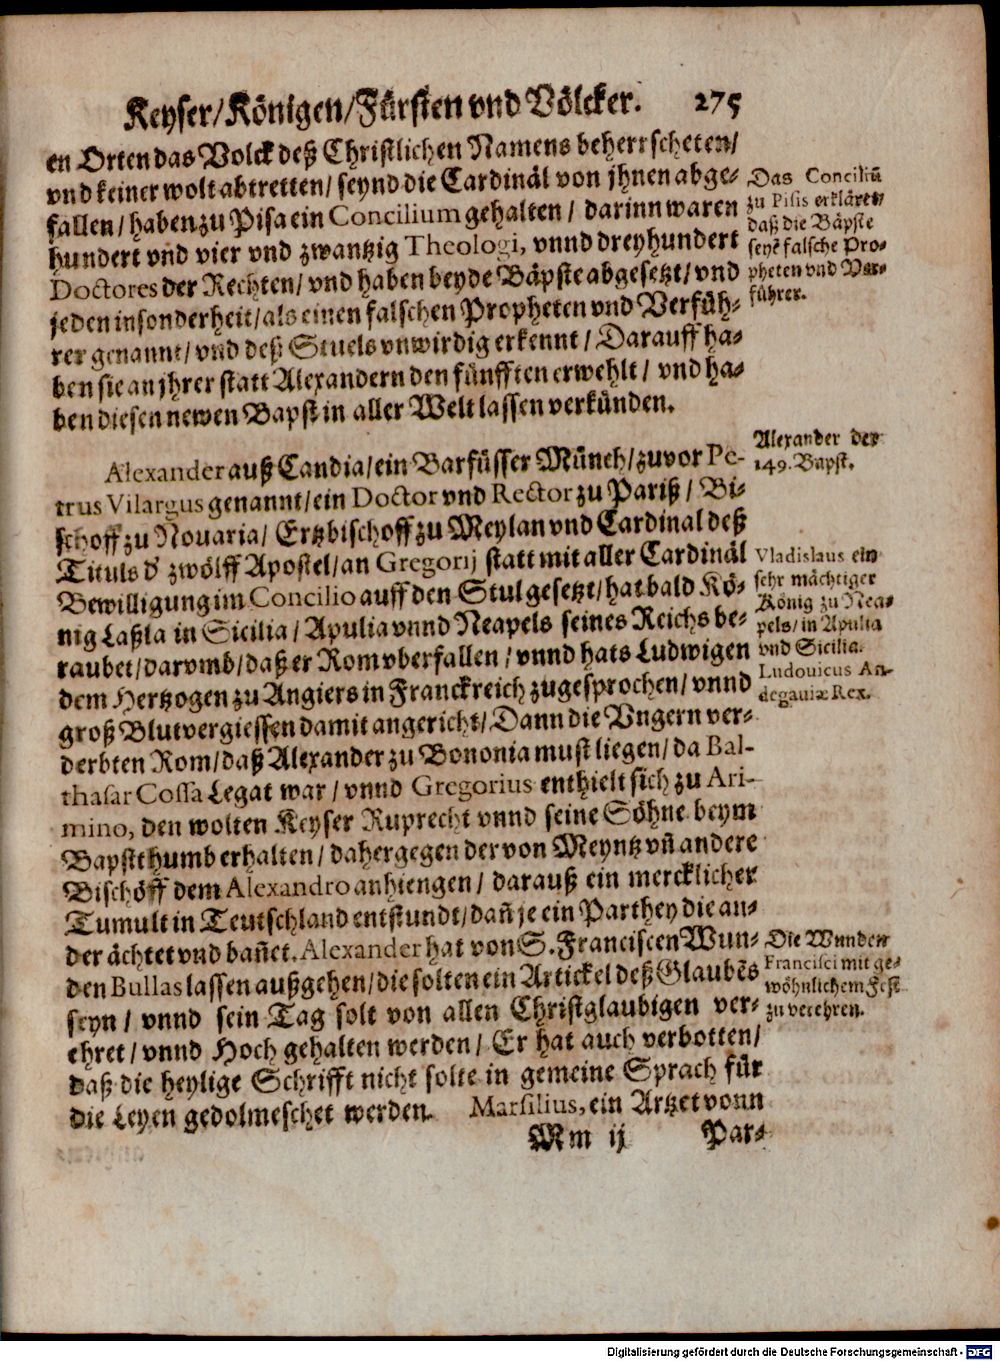 Keyser/Königen/Fürsten vnd Völcker. 275
en Orten das Volck deß Christlichen Namens beherrscheten/
vnd keiner wolt abtretten/ seynd die Cardinäl von jhnen abge-
fallen/ haben zu Pisa ein Concilium gehalten/ darinn waren
hundert vnd vier vnd zwantzig Theologi, vnnd dreyhundert
Doctores der Rechten/ vnd haben beyde Bäpste abgesetzt/ vnd
jeden insonderheit/ als einen falschen Propheten vnd Verfüh-
rer genannt/ vnd deß Stuels vnwirdig erkennt/ Darauff ha-
ben sie an jhrer statt Alexandern den fünfften erwehlt/ vnd ha-
ben diesen newen Bapst in aller Welt lassen verkünden.
Das Conciliū
zu Pisis erkläret/
daß die Bäpste
seyē falsche Pro-
pheten vnd Ver-
führer.
Alexander auß Candia/ ein Barfüsser Münch/ zuvor Pe-
trus Vilargus genannt/ ein Doctor vnd Rector zu Pariß/ Bi-
schoff zu Nouaria/ Ertzbischoff zu Meylan vnd Cardinal deß
Tituls d' zwölff Apostel/ an Gregorij statt mit aller Cardinäl
Bewilligung im Concilio auff den Stul gesetzt/ hat bald Kö-
nig Laßla in Sicilia/ Apulia vnnd Neapels seines Reichs be-
raubet/ darvmb/ daß er Rom vberfallen/ vnnd hats Ludwigen
dem Hertzogen zu Angiers in Franckreich zugesprochen/ vnnd
groß Blutvergiessen damit angericht/ Dann die Vngern ver-
derbten Rom/ daß Alexander zu Bononia must liegen/ da Bal-
thasar Cossa Legat war/ vnnd Gregorius enthielt sich zu Ari-
mino, den wolten Keyser Ruprecht vnnd seine Söhne beym
Bapstthumb erhalten/ dahergegen der von Meyntz vñ andere
Bischöff dem Alexandro anhiengen/ darauß ein mercklicher
Tumult in Teutschland entstundt/ dañ je ein Parthey die an-
der ächtet vnd bañet. Alexander hat von S. Franciscen Wun-
den Bullas lassen außgehen/ die solten ein Artickel deß Glaubēs
seyn/ vnnd sein Tag solt von allen Christglaubigen ver-
ehret/ vnnd Hoch gehalten werden/ Er hat auch verbotten/
daß die heylige Schrifft nicht solte in gemeine Sprach für
die Leyen gedolmeschet werden. Marsilius, ein Artzet vonn
Alexander der
149. Bapst.
Vladislaus ein
sehr mächtiger
König zu Nea-
pels/ in Apulia
vnd Sicilia.
Ludouicus An-
degauiæ Rex.
Die Wunden
Francisci mit ge-
wöhnlichem Fest
zu verehren.
Mm ij Par-
Digitalisierung gefördert durch die Deutsche Forschungsgemeinschaft - DFG